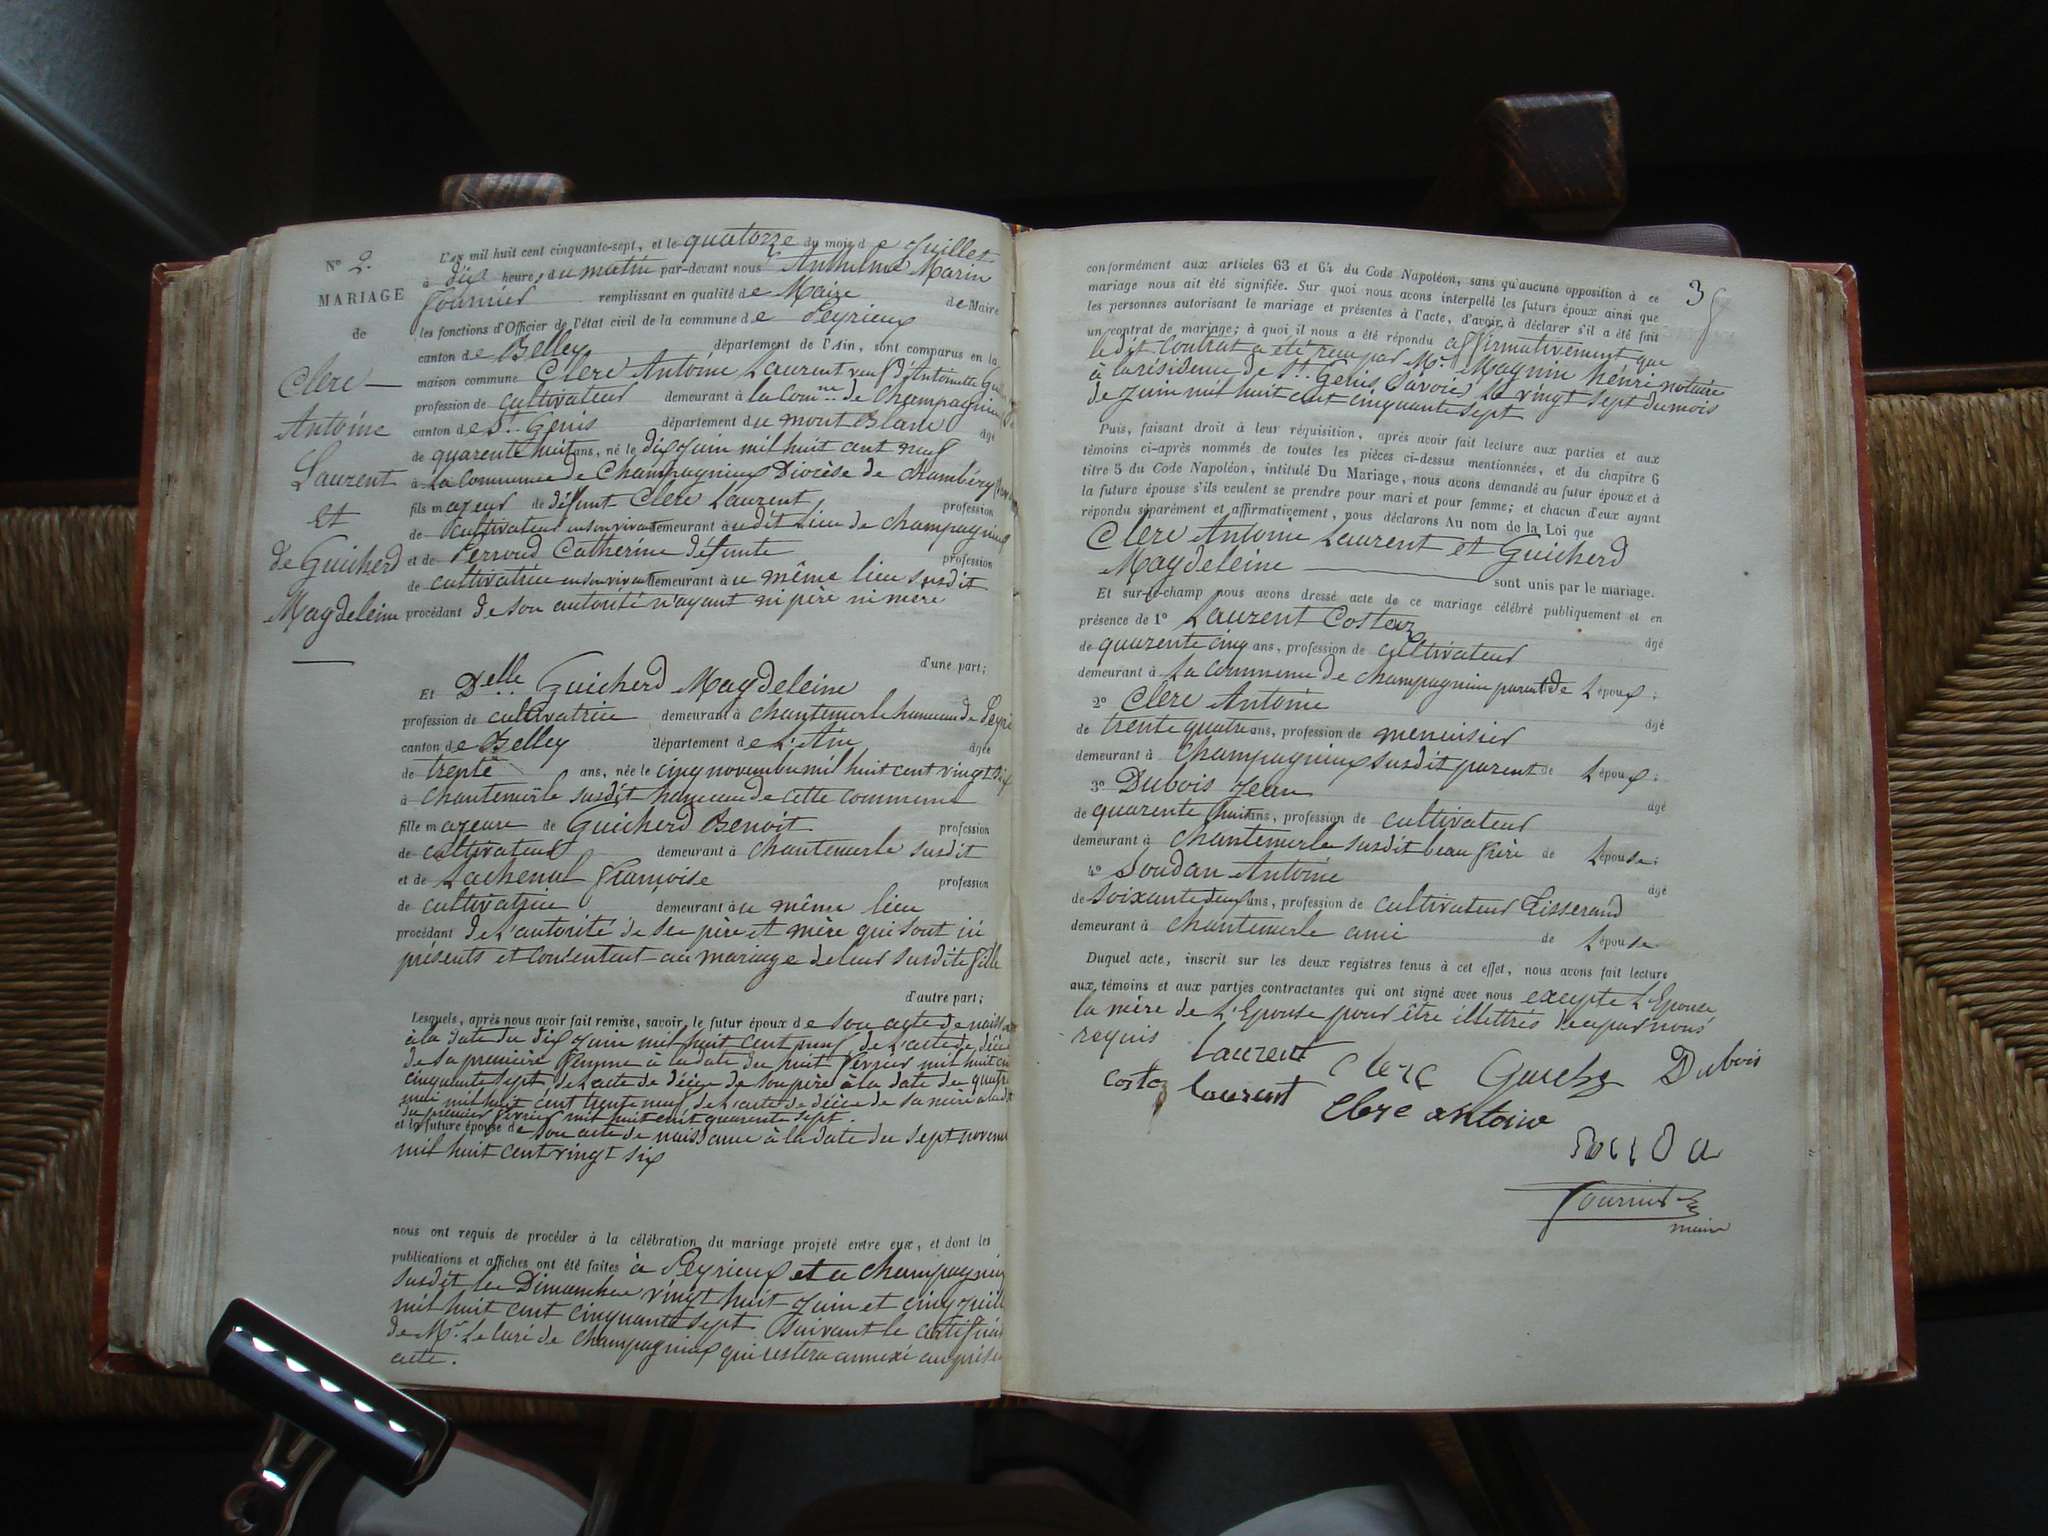 N° 2.
MARIAGE
de
Clerc
Antoine
Laurent
et
de Guicherd
Magdeleine
L'an mil huit cent cinquante-sept, et le quatorze du mois de Juillet
à dix heures du matin par-devant nous Anthelme Marin
Fournier remplissant en qualité de Maire de Maire
les fonctions d'Officier de l'état civil de la commune de Peyrieux
canton de Belley département de l'Ain, sont comparus en la
maison commune Clerc Antoine Laurent veuf d'Antoinette
profession de cultivateur demeurant à la Comne de Champagnieux
canton de St. Genis département du mont Blanc âgé
de quarente huit ans, né le dix Juin mil huit cent neuf
à La Commune de Champagnieux Diocèse de Chambéry
fils majeur de défunt Clerc Laurent, profession
de cultivateur en son vivant demeurant à udit Lieu de Champagnieux
et de Perroud Catherine défunte profession
de cultivatrice en son vivant demeurant à u même lieu susdit
procédant de son autorité n'ayant ni père ni mère
d'une part;
Et Delle Guicherd Magdeleine
profession de cultivatrice demeurant à chantemerle hameau de Peyri
canton de Belley département de L'Ain âgée
de trente ans, née le cinq novembre mil huit cent vingt six
à chantemerle susdit hameau de cette commune
fille majeure de Guicherd Benoit profession
de cultivateur demeurant à chantemerle susdit
et de Lachenal Françoise profession
de cultivatrice demeurant à u même lieu
procédant de L'autorité de see père et mère qui sont ici
présents et Consentent au mariage de leur susdite fille
d'autre part;
Lesquels, après nous avoir fait remise, savoir, le futur époux de son acte de naiss
à la date du dix Juin mil huit cent neuf, de L'acte de décè
de sa première femme à la date du huit Fevrier mil huit cen
cinquante sept, de L'acte de décè de son père à la date du quatre
mai mil huit cent trente neuf, de L'acte de décè de sa mère a la d
du premier fevrier mil huit cent quarente sept.
et la future épouse de son acte de naissance à la date du sept novem
mil huit cent vingt six
nous ont requis de procéder à la célébration du mariage projeté entre eux, et dont les
publications et affiches ont été faites à Peyrieux et a champagnieux
susdit les Dimanches vingt huit Juin et cinq Juill
mil huit cent cinquante sept. Suivant le certificat
de Mr. Le Curé de Champagnieux qui restera annexé au prés
acte.
3
conformément aux articles 63 et 64 du Code Napoléon, sans qu'aucune opposition à ce
mariage nous ait été signifiée. Sur quoi nous avons interpellé les futurs époux ainsi que
les personnes autorisant le mariage et présentes à l'acte, d'avoir à déclarer s'il a été fait
un contrat de mariage; à quoi il nous a été répondu affirmativement que
le dit Contrat a été reçu par Mr. Magnin hénri notaire
à la résidence de St. Genis (Savoie) Le vingt sept du mois
de Juin mil huit cent cinquante sept
Puis, faisant droit à leur réquisition, après avoir fait lecture aux parties et aux
témoins ci-après nommés de toutes les pièces ci-dessus mentionnées, et du chapitre 6
titre 5 du Code Napoléon, intitulé Du Mariage, nous avons demandé au futur époux et à
la future épouse s'ils veulent se prendre pour mari et pour femme; et chacun d'eux ayant
répondu séparément et affirmativement, nous déclarons Au nom de la Loi que
Clerc Antoine Laurent et Guicherd
Magdeleine sont unis par le mariage.
Et sur-le-champ nous avons dressé acte de ce mariage célébré publiquement et en
présence de 1° Laurent Costaz âgé
de quarente cinq ans, profession de cultivateur
demeurant à La Commune de champagnieux parent de L'époux;
2° Clerc Antoine âgé
de trente quatre ans, profession de menuisier
demeurant à Champagnieux susdit parent de L'époux;
3° Dubois Jean âgé
de quarente huit ans, profession de cultivateur
demeurant à chantemerle susdit beau frère de L'épouse;
4° Soudan Antoine âgé
de soixante deux ans, profession de cultivateur Tisserand
demeurant à chantemerle ami de L'épouse
Duquel acte, inscrit sur les deux registres tenus à cet effet, nous avons fait lecture
aux témoins et aux parties contractantes qui ont signé avec nous excepte L'Epouse
la mère de L'Epouse pour être illettrés de ce par nous
requis
Laurent Clerc Guicher Dubois
Costaz laurent Clerc antoine
Soudan
Fournier
maire